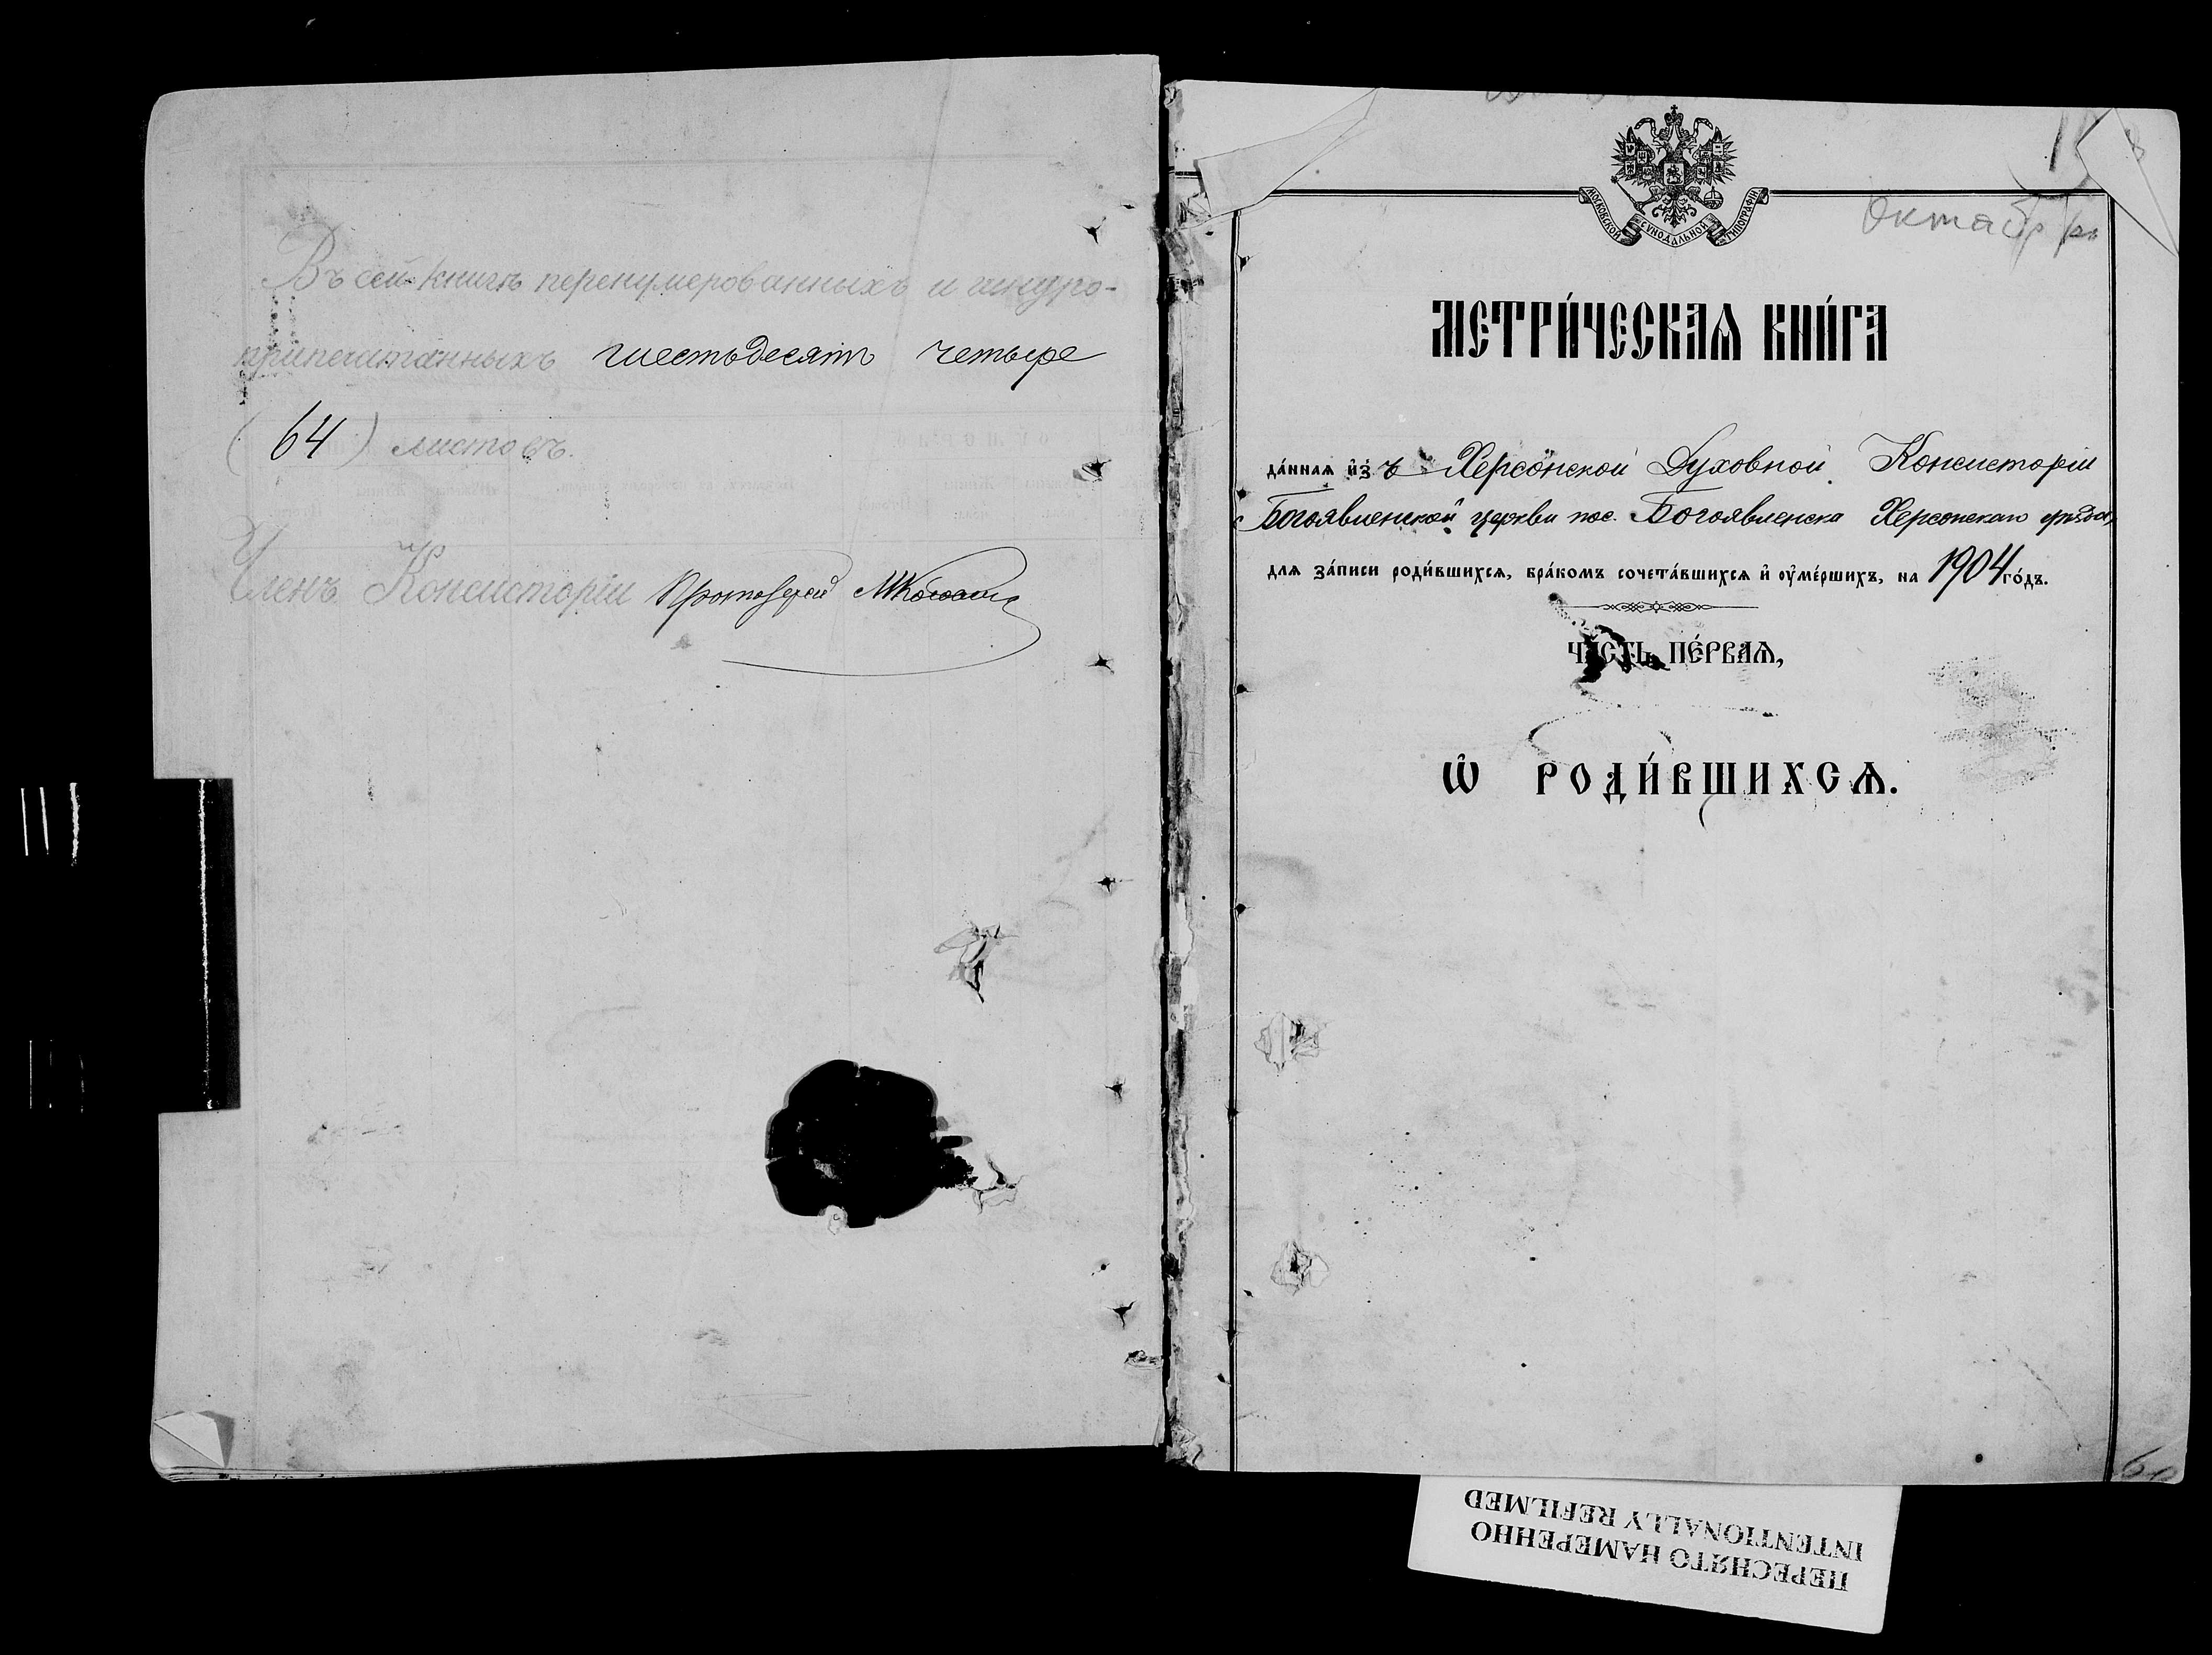 Въ сей книгѣ перенумерованныхъ и шнуро-
припечатанныхъ шестьдесятъ четыре
(64) листовъ.
Членъ Консисторіи Протоіерей
МОСКОВСКОЙ СѴНОДАЛЬНОЙ ТИПОГРАФІИ
Октябрь
МЕТРИ́ЧЕСКАѦ КНИ́ГА
да́ннаѧ и҆зъ Херсонской Духовной Консисторіи
Богоявленской церкви пос. Богоявленска Херсонскаго уѣзда,
для за́писи роди́вшихсѧ, бра́комъ сочета́вшихсѧ и҆ оу҆ме́ршихъ, на 1904 го́дъ.
ЧА́СТЬ ПЕ́РВАѦ,
Ѡ҆ РОДИ́ВШИХСѦ.
ПЕРЕСНЯТО НАМЕРЕННО
INTENTIONALLY REFILMED